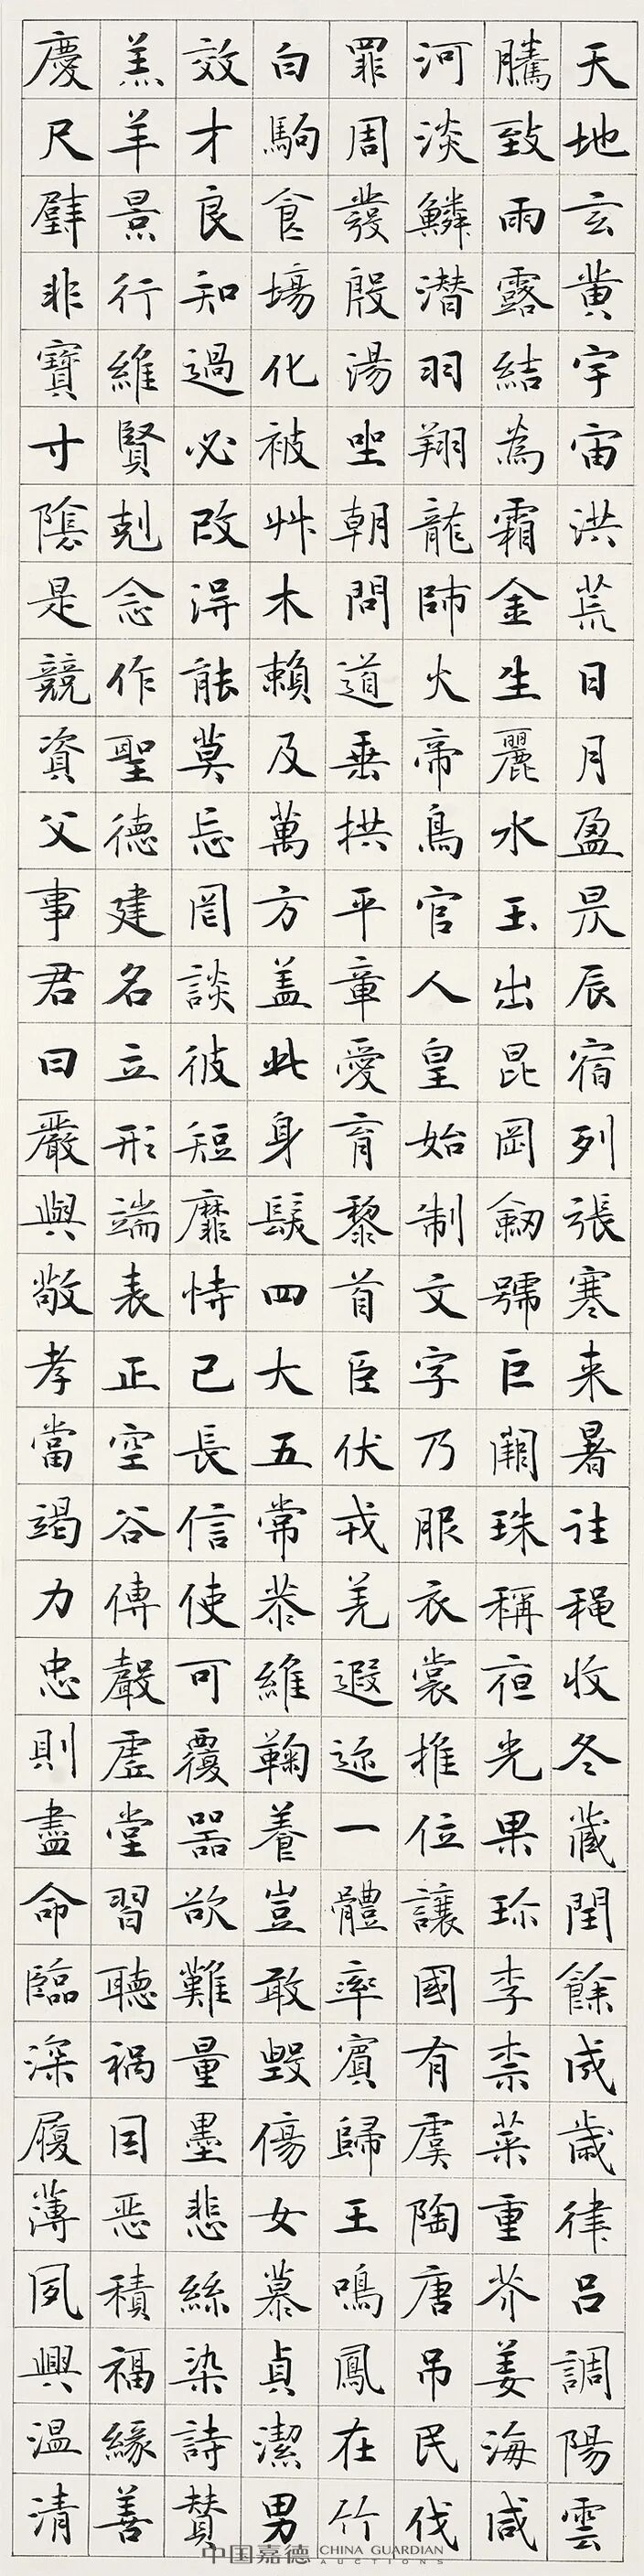 天地玄黄宇宙洪荒日月盈昃辰宿列張寒来暑往秋收冬藏閏餘成歲律呂調陽雲
騰致雨露結為霜金生麗水玉出昆岡劒號巨闕珠稱夜光果珎李柰菜重芥姜海咸
河淡鱗潜羽翔龍師火帝鳥官人皇始制文字乃服衣裳推位讓國有虞陶唐吊民伐
罪周發殷湯坐朝問道垂拱平章愛育黎首臣伏戎羌遐迩一體率賓歸王鳴鳳在竹
白駒食場化被艸木賴及萬方盖此身髮四大五常恭維鞠養豈敢毀傷女慕貞潔男
效才良知過必改得能莫忘罔談彼短靡恃己長信使可覆器欲難量墨悲絲染詩賛
羔羊景行維賢剋念作聖德建名立形端表正空谷傳聲虛堂習聽禍因惡積福緣善
慶尺璧非寶寸陰是競資父事君曰嚴與敬孝當竭力忠則盡命臨深履薄夙興温清
中国嘉德 CHINA GUARDIAN AUCTIONS